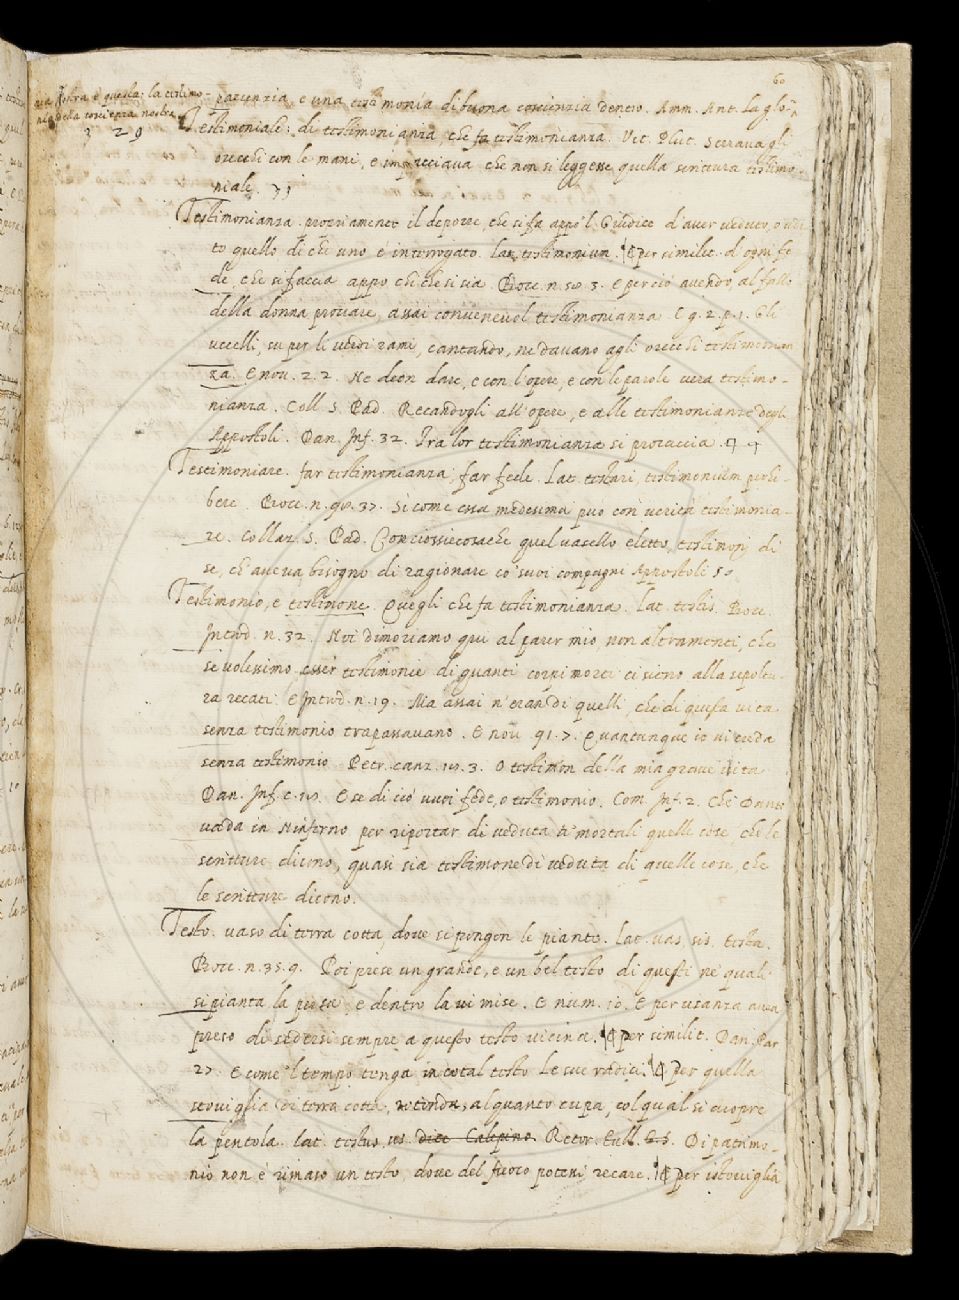 60
ria nostra è questa: la testimo-
nia della coscienza nostra
3 2 9
pacienzia, e una testimonía di buona coscienzia dentro. Amm. Ant. La glo-
Testimoniale: di testimonianza, che fa testimonianza. Vit. Plut. Serrava gli
orecchi con le mani, e impacciava che non si leggesse quella scrittura testimo-
niale.
Testimonianza. propriamente il deporre, che si fa appo 'l Giudice d'aver veduto, o udi
to quello di che uno è interrogato. Lat. testimonium. per similit. d'ogni fe
de, che si faccia appo chi che si sia. Bocc. n. 50. 3. e perciò avendo, al fallo
della donna provare, assai convenevol testimonianza. E g. 2. p. 1. Gli
uccelli, su per li verdi rami, cantando, ne davano agli orecchi testimonian
za. E nov. 22. Ne deon dare, e con l'opere, e con le parole vera testimo-
nianza. Coll. S. Pad. Recandogli all'opere, e alle testimonianze degli
Appostoli. Dan. Inf. 32. Tra lor testimonianza si procaccia.
Testimoniare. far testimonianza, far fede. Lat. testari, testimonium perhi-
bere. Bocc. n. 98. 37. Sì come essa medesima può con verità testimonia-
re. Collaz. S. Pad. Conciossiecosache quel vasello eletto, testimonj di
se, ch'aveva bisogno di ragionare co' suoi compagni Appostoli
Testimonio, e testimone. Quegli che fa testimonianza. Lat. testis. Bocc.
Introd. n. 32. Noi dimoriamo qui al parer mio, non altramenti, che
se volessimo esser testimonie di quanti corpi morti ci sieno alla sepoltu-
ra recati. E Introd. n. 19. Ma assai n'eran di quelli, che di questa vita
senza testimonio trapassavano. E nov. 91. 7. Quantunque io vi creda
senza testimonio. Petr. canz. 3. O testimon della mia grave vita
Dan. Inf. c. E se di ciò vuoi fede, o testimonio. Com. Inf. 2. Che Dante
vada in Ninferno per riportar di veduta a' mortali quelle cose che le
scritture dicono, quasi sia testimone di veduta di quelle cose, che
le scritture dicono.
Testo. vaso di terra cotta, dove si pongon le piante. Lat. vas, sis, testa.
Bocc. n. 35. 9. Poi prese un grande, e un bel testo di questi ne' quali
si pianta la persa, e dentro la vi mise. E num. 10. E per usanza avea
preso di sedersi sempre a questo testo vicina. per similit. Dan. Par
27. E come 'l tempo tenga in cotal testo Le sue radici. per quella
stoviglia di terra cotta, ritonda, alquanto cupa, col qual si cuopre
la pentola. lat. testus, us. dice Calepino. Rettor. Tull. Di patrimo-
nio non è rimaso un testo, dove del fuoco potessi recare. per istoviglia